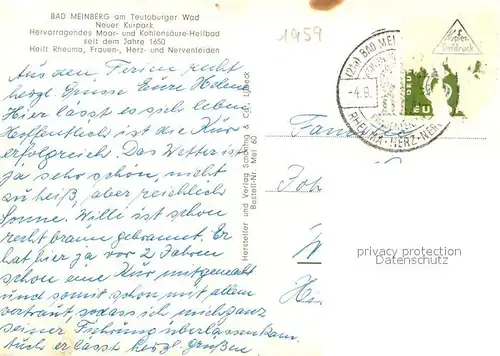 BAD MEINBERG am Teutoburger Wad
Neuer Kurpark
Hervorragendes Moor- und Kohlensäure-Heilbad
seit dem Jahre 1650
Heilt Rheuma, Frauen-, Herz- und Nervenleiden
1959
Aus den Ferien recht
herzl. Grüsse Eure Helene
Hier lässt es sich leben
Hoffentlich ist die Kür
erfolgreich. Das Wetter ist
ja sehr schön, nicht
zu heiß, aber reichlich
Sonne. Willi ist schon
recht braun gebrannt. Er
hat hier ja vor 2 Jahren
schon eine Kür mitgemacht
und somit schon mit allem
vertraut, sodass ich mich ganz
seiner Führung überlassen kann.
Euch er lässt herzl. grüßen
Hersteller und Verlag Schöning & Co., Lübeck
Bestell-Nr. Mei 60
Kupfer-
Tiefdruck
(21a) BAD MEI
-4.9.
RHEUMA-HERZ-NER
DEUT
Familie
Joh
privacy protection
Datenschutz